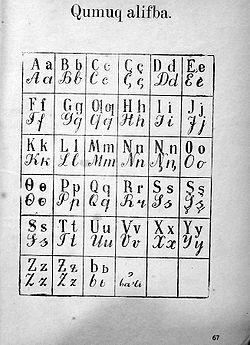 Qumuq alifba.
Aa Bb Cc Çç Dd Ee
Aa Bb Cc Çç Dd Ee
Ff Gg Ƣƣ Hh Ii Jj
Ff Gg Ƣƣ Hh Ii Jj
Kk Ll Mm Nn Ꞑꞑ Oo
Kk Ll Mm Nn Ꞑꞑ Oo
Ɵɵ Pp Qq Rr Ss Şş
Ɵɵ Pp Qq Rr Ss Şş
Ss Tt Uu Vv Xx Yy
Ss Tt Uu Vv Xx Yy
Zz Ƶƶ Ьь
Zz Ƶƶ Ьь
67